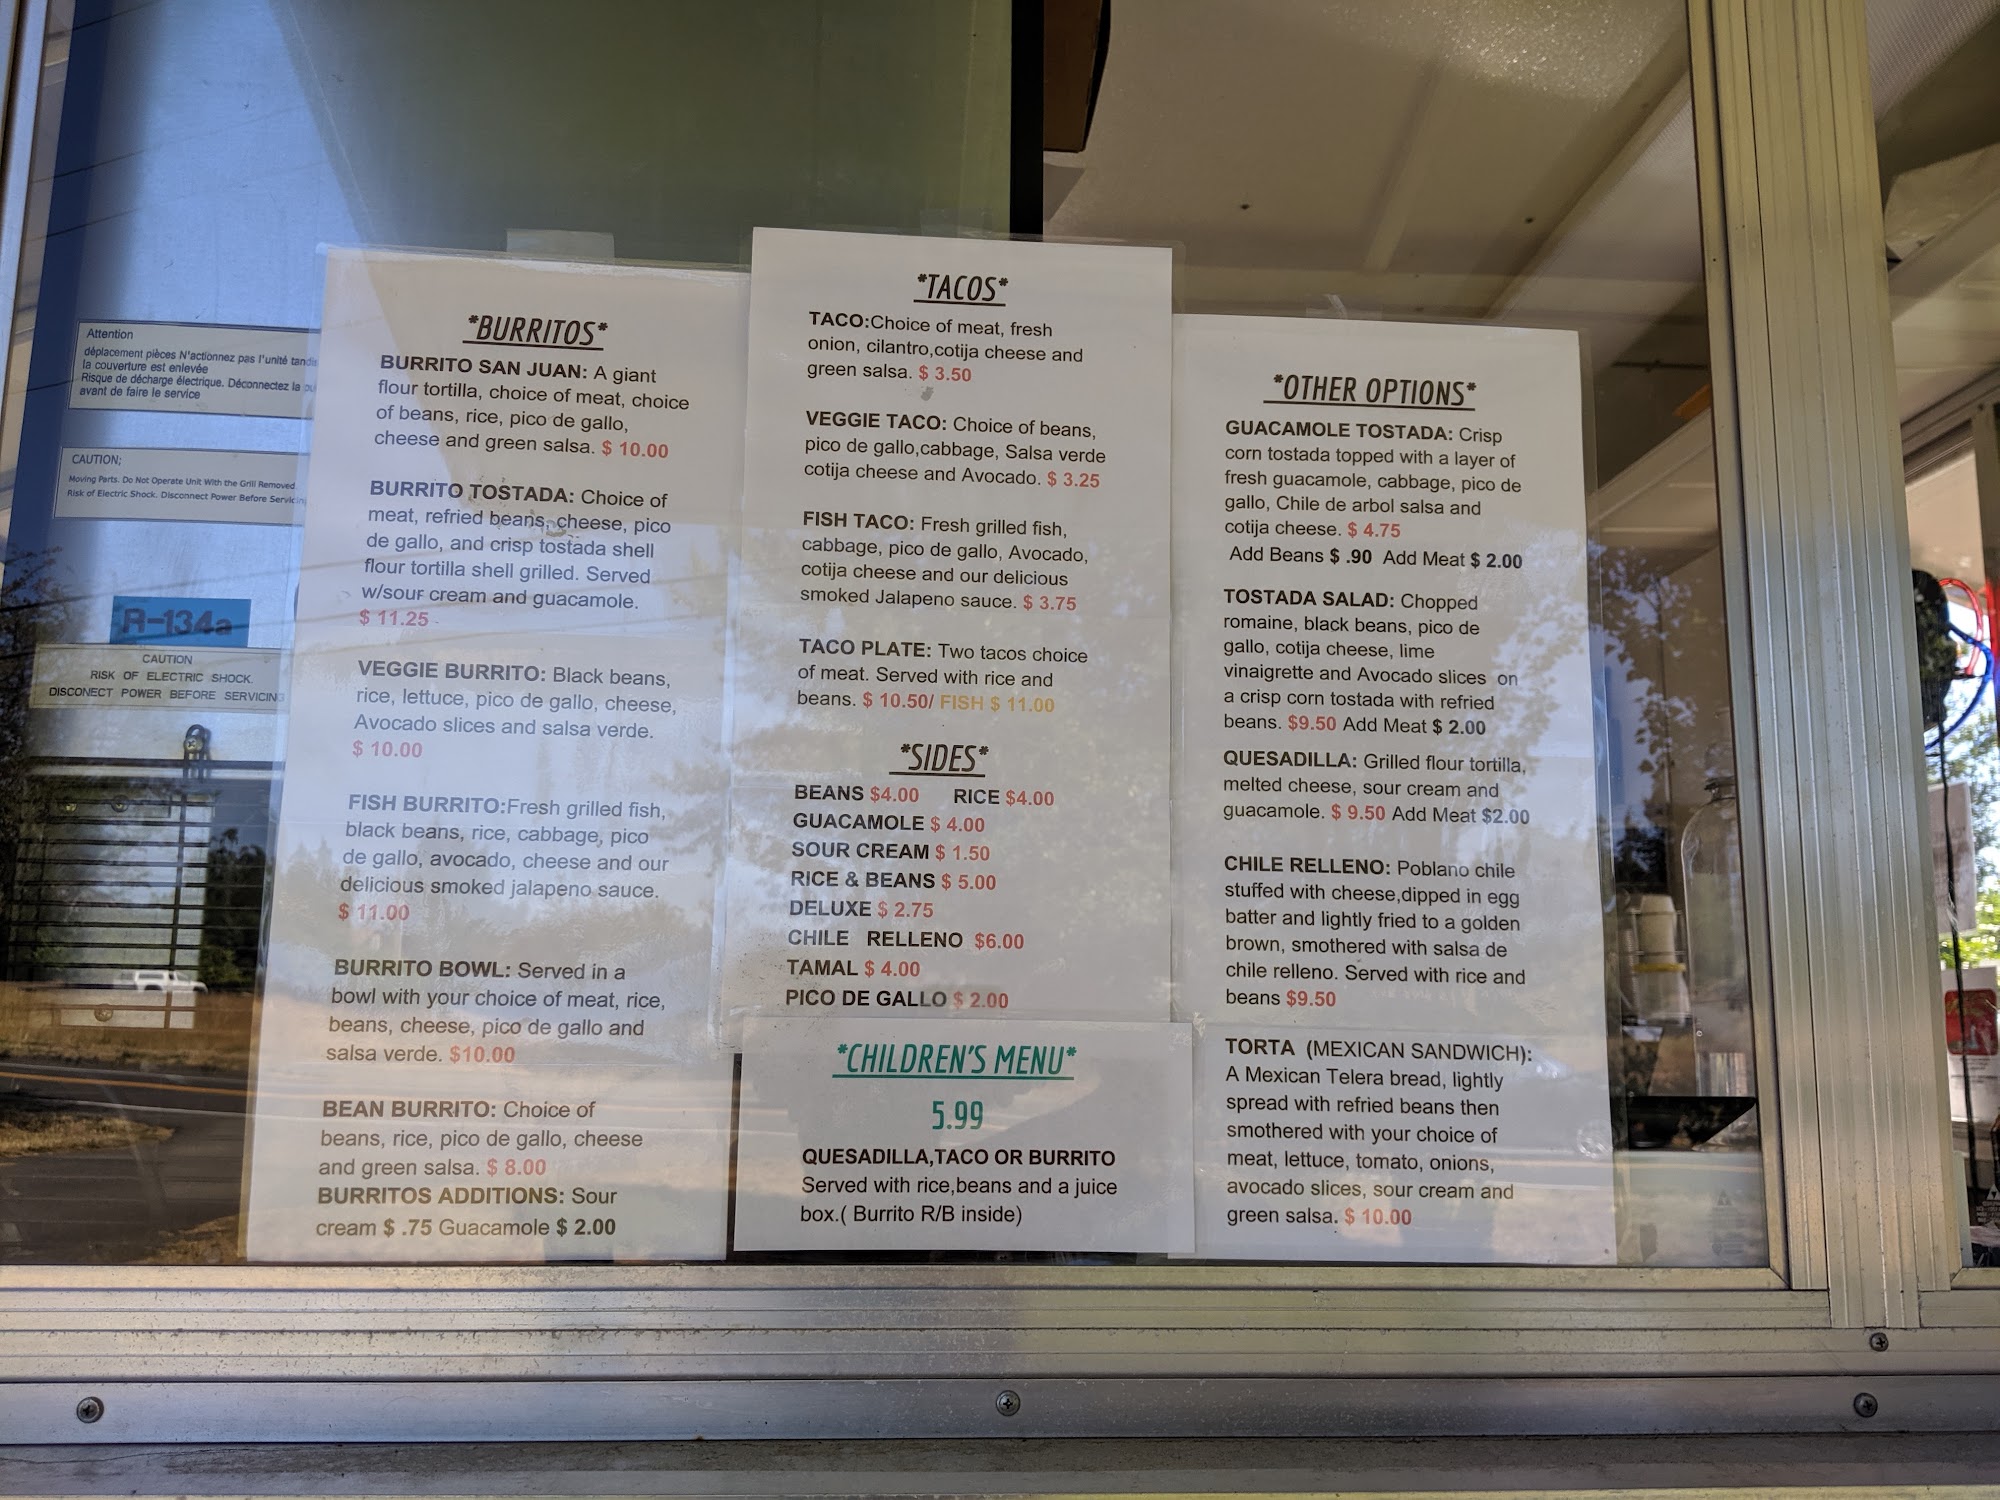 Attention
déplacement pièces N'actionnez pas l'unité
la couverture est enlevée
Risque de décharge électrique. Déconnectez la
avant de faire le service
CAUTION;
Moving Parts. Do Not Operate Unit With the Grill Removed.
Risk of Electric Shock. Disconnect Power Before
R-134a
CAUTION
RISK OF ELECTRIC SHOCK.
DISCONECT POWER BEFORE SERVICING
*BURRITOS*
BURRITO SAN JUAN: A giant
flour tortilla, choice of meat, choice
of beans, rice, pico de gallo,
cheese and green salsa. $ 10.00
BURRITO TOSTADA: Choice of
meat, refried beans, cheese, pico
de gallo, and crisp tostada shell
flour tortilla shell grilled. Served
w/sour cream and guacamole.
$ 11.25
VEGGIE BURRITO: Black beans,
rice, lettuce, pico de gallo, cheese,
Avocado slices and salsa verde.
$ 10.00
FISH BURRITO:Fresh grilled fish,
black beans, rice, cabbage, pico
de gallo, avocado, cheese and our
delicious smoked jalapeno sauce.
$ 11.00
BURRITO BOWL: Served in a
bowl with your choice of meat, rice,
beans, cheese, pico de gallo and
salsa verde. $10.00
BEAN BURRITO: Choice of
beans, rice, pico de gallo, cheese
and green salsa. $ 8.00
BURRITOS ADDITIONS: Sour
cream $ .75 Guacamole $ 2.00
*TACOS*
TACO:Choice of meat, fresh
onion, cilantro,cotija cheese and
green salsa. $ 3.50
VEGGIE TACO: Choice of beans,
pico de gallo,cabbage, Salsa verde
cotija cheese and Avocado. $ 3.25
FISH TACO: Fresh grilled fish,
cabbage, pico de gallo, Avocado,
cotija cheese and our delicious
smoked Jalapeno sauce. $ 3.75
TACO PLATE: Two tacos choice
of meat. Served with rice and
beans. $ 10.50/ FISH $ 11.00
*SIDES*
BEANS $4.00 RICE $4.00
GUACAMOLE $ 4.00
SOUR CREAM $ 1.50
RICE & BEANS $ 5.00
DELUXE $ 2.75
CHILE RELLENO $6.00
TAMAL $ 4.00
PICO DE GALLO $ 2.00
*CHILDREN'S MENU*
5.99
QUESADILLA,TACO OR BURRITO
Served with rice,beans and a juice
box.( Burrito R/B inside)
*OTHER OPTIONS*
GUACAMOLE TOSTADA: Crisp
corn tostada topped with a layer of
fresh guacamole, cabbage, pico de
gallo, Chile de arbol salsa and
cotija cheese. $ 4.75
Add Beans $ .90 Add Meat $ 2.00
TOSTADA SALAD: Chopped
romaine, black beans, pico de
gallo, cotija cheese, lime
vinaigrette and Avocado slices on
a crisp corn tostada with refried
beans. $9.50 Add Meat $ 2.00
QUESADILLA: Grilled flour tortilla,
melted cheese, sour cream and
guacamole. $ 9.50 Add Meat $2.00
CHILE RELLENO: Poblano chile
stuffed with cheese,dipped in egg
batter and lightly fried to a golden
brown, smothered with salsa de
chile relleno. Served with rice and
beans $9.50
TORTA (MEXICAN SANDWICH):
A Mexican Telera bread, lightly
spread with refried beans then
smothered with your choice of
meat, lettuce, tomato, onions,
avocado slices, sour cream and
green salsa. $ 10.00